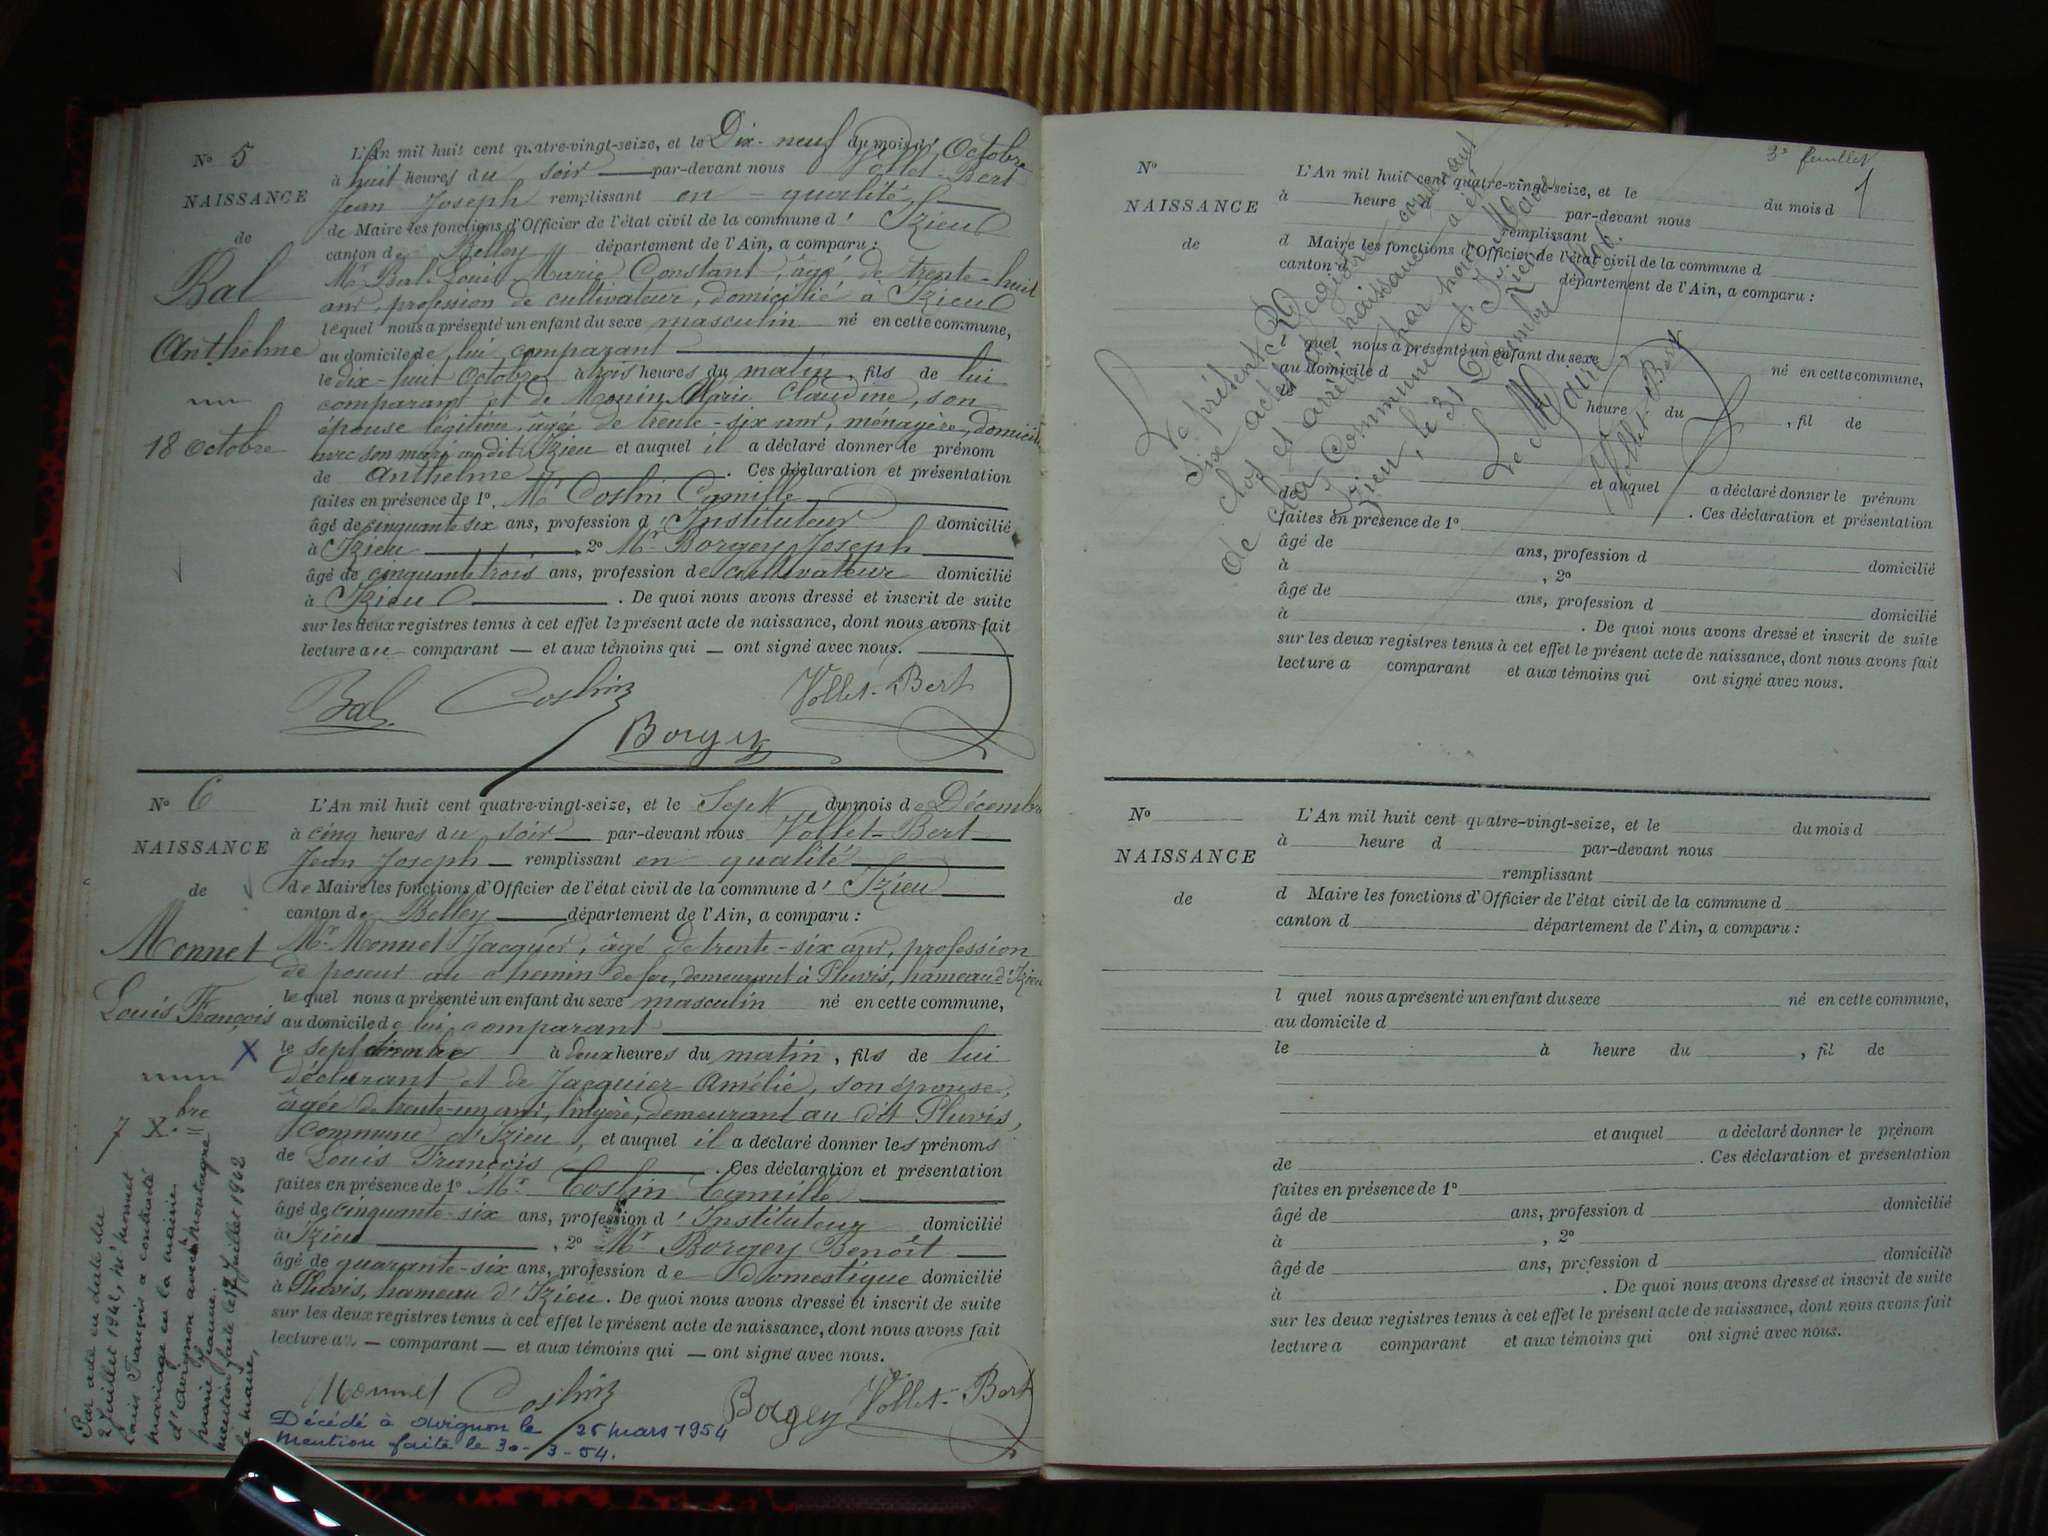 N° 5
NAISSANCE
de
Bal
Anthelme
18 octobre
L'An mil huit cent quatre-vingt-seize, et le Dix-neuf du mois de Octobre
à huit heures du soir par-devant nous Vollet-Bert
Jean Joseph remplissant en qualité
de Maire les fonctions d'Officier de l'état civil de la commune d'Izieu
canton de Belley département de l'Ain, a comparu :
Mr Bal Louis Marie Constant, âgé de trente-huit
ans, profession de cultivateur, domicilié à Izieu
lequel nous a présenté un enfant du sexe masculin né en cette commune,
au domicile de lui comparant
le dix-huit Octobre à trois heures du matin, fils de lui
comparant et de Monin Marie Claudine, son
épouse légitime, âgée de trente-six ans, ménagère, domiciliée
avec son mari au dit Izieu et auquel il a déclaré donner le prénom
de Anthelme . Ces déclaration et présentation
faites en présence de 1°. Mr Coslin Camille
âgé de cinquante six ans, profession d'Instituteur domicilié
à Izieu 2° Mr Borgey Joseph
âgé de cinquante trois ans, profession de cultivateur domicilié
à Izieu . De quoi nous avons dressé et inscrit de suite
sur les deux registres tenus à cet effet le présent acte de naissance, dont nous avons fait
lecture au comparant et aux témoins qui ont signé avec nous.
Bal Coslin Vollet-Bert
Borgey
N° 6
NAISSANCE
de
Monnet
Louis François
X
7 Xbre
L'An mil huit cent quatre-vingt-seize, et le Sept du mois de Décembre
à cinq heures du soir par-devant nous Vollet-Bert
Jean Joseph remplissant en qualité
de Maire les fonctions d'Officier de l'état civil de la commune d'Izieu
canton de Belley département de l'Ain, a comparu :
Mr Monnet Jacques, âgé de trente-six ans, profession
de poseur au chemin de fer, demeurant à Pluvis, hameau d'Izieu
lequel nous a présenté un enfant du sexe masculin né en cette commune,
au domicile de lui comparant
le sept décembre à deux heures du matin, fils de lui
déclarant et de Jacquier Amélie, son épouse,
âgée de trente-un ans, lingère, demeurant au dit Pluvis,
commune d'Izieu, et auquel il a déclaré donner les prénoms
de Louis François . Ces déclaration et présentation
faites en présence de 1° Mr Coslin Camille
âgé de cinquante-six ans, profession d'Instituteur domicilié
à Izieu , 2° Mr Borgey Benoît
âgé de quarante-six ans, profession de domestique domicilié
à Pluvis, hameau d'Izieu. De quoi nous avons dressé et inscrit de suite
sur les deux registres tenus à cet effet le présent acte de naissance, dont nous avons fait
lecture au comparant et aux témoins qui ont signé avec nous.
Monnet Coslin Borgey Vollet-Bert
Décédé à Avignon le 26 mars 1954
Mention faite le 30-3-54.
Par acte en date du
2 Juillet 1942, né monnet
Louis François a contracté
mariage en la mairie
d'Avignon avec montagne
marie Jeanne.
mention faite le 17 Juillet 1942
Le maire,
3e feuillet
1
N°
NAISSANCE
de
L'An mil huit cent quatre-vingt-seize, et le du mois d
à heure d par-devant nous
remplissant
d Maire les fonctions d'Officier de l'état civil de la commune d
canton d département de l'Ain, a comparu :
l quel nous a présenté un enfant du sexe né en cette commune,
au domicile d
le heure du , fil de
et auquel a déclaré donner le prénom
de . Ces déclaration et présentation
faites en présence de 1°
âgé de ans, profession d domicilié
à , 2°
âgé de ans, profession d domicilié
à . De quoi nous avons dressé et inscrit de suite
sur les deux registres tenus à cet effet le présent acte de naissance, dont nous avons fait
lecture a comparant et aux témoins qui ont signé avec nous.
Le présent Registre contenant
six actes de naissance a été
clos et arrêté par nous Maire
de la Commune d'Izieu
Izieu, le 31 Décembre 1896.
Le Maire
Vollet-Bert
N°
NAISSANCE
de
L'An mil huit cent quatre-vingt-seize, et le du mois d
à heure d par-devant nous
remplissant
d Maire les fonctions d'Officier de l'état civil de la commune d
canton d département de l'Ain, a comparu :
l quel nous a présenté un enfant du sexe né en cette commune,
au domicile d
le à heure du , fil de
et auquel a déclaré donner le prénom
de . Ces déclaration et présentation
faites en présence de 1°
âgé de ans, profession d domicilié
à , 2°
âgé de ans, profession d domicilié
à . De quoi nous avons dressé et inscrit de suite
sur les deux registres tenus à cet effet le présent acte de naissance, dont nous avons fait
lecture a comparant et aux témoins qui ont signé avec nous.